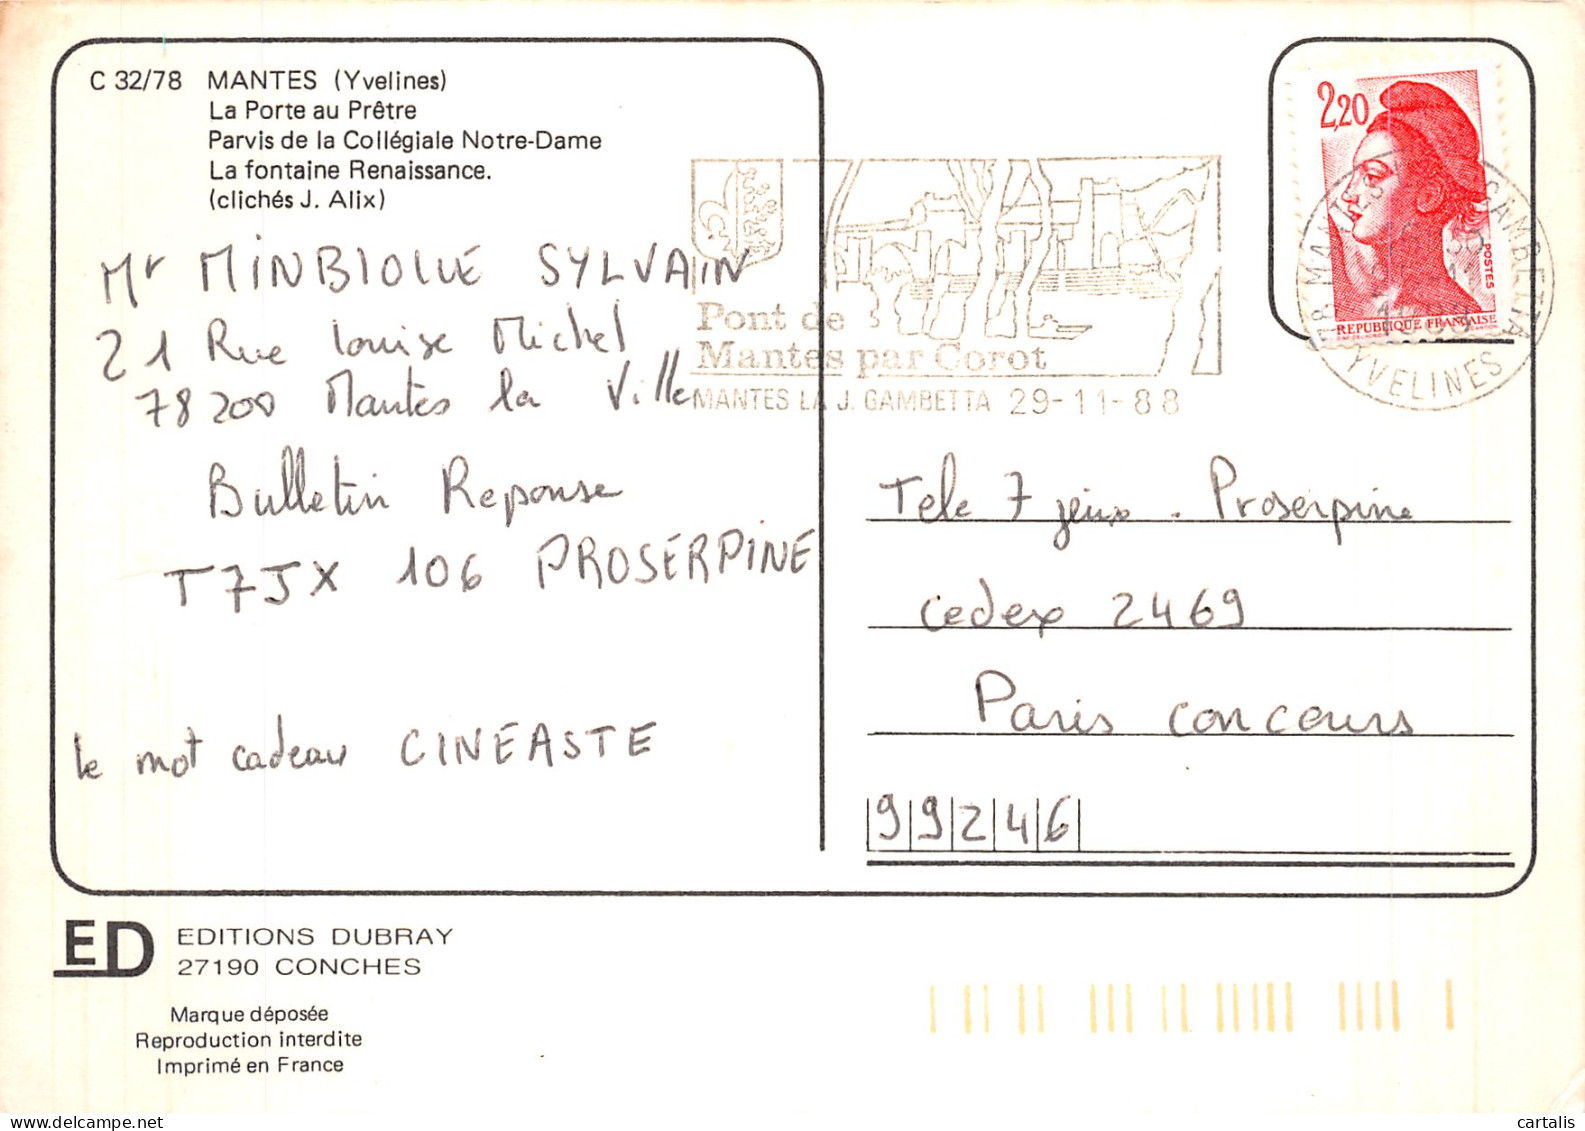 C 32/78 MANTES (Yvelines)
La Porte au Prêtre
Parvis de la Collégiale Notre-Dame
La fontaine Renaissance.
(clichés J. Alix)
Mr MINBIOLLE SYLVAIN
21 Rue Louise Michel
78200 Mantes la Ville
Bulletin Reponse
T7JX 106 PROSERPINE
le mot cadeau CINEASTE
2,20
POSTES
REPUBLIQUE FRANÇAISE
Pont de
Mantes par Corot
MANTES LA J. GAMBETTA 29-11-88
78 MANTES GAMBETTA
YVELINES
Tele 7 jeux. Proserpine
Cedex 2469
Paris concours
99246
ED EDITIONS DUBRAY
27190 CONCHES
Marque déposée
Reproduction interdite
Imprimé en France
cartalis